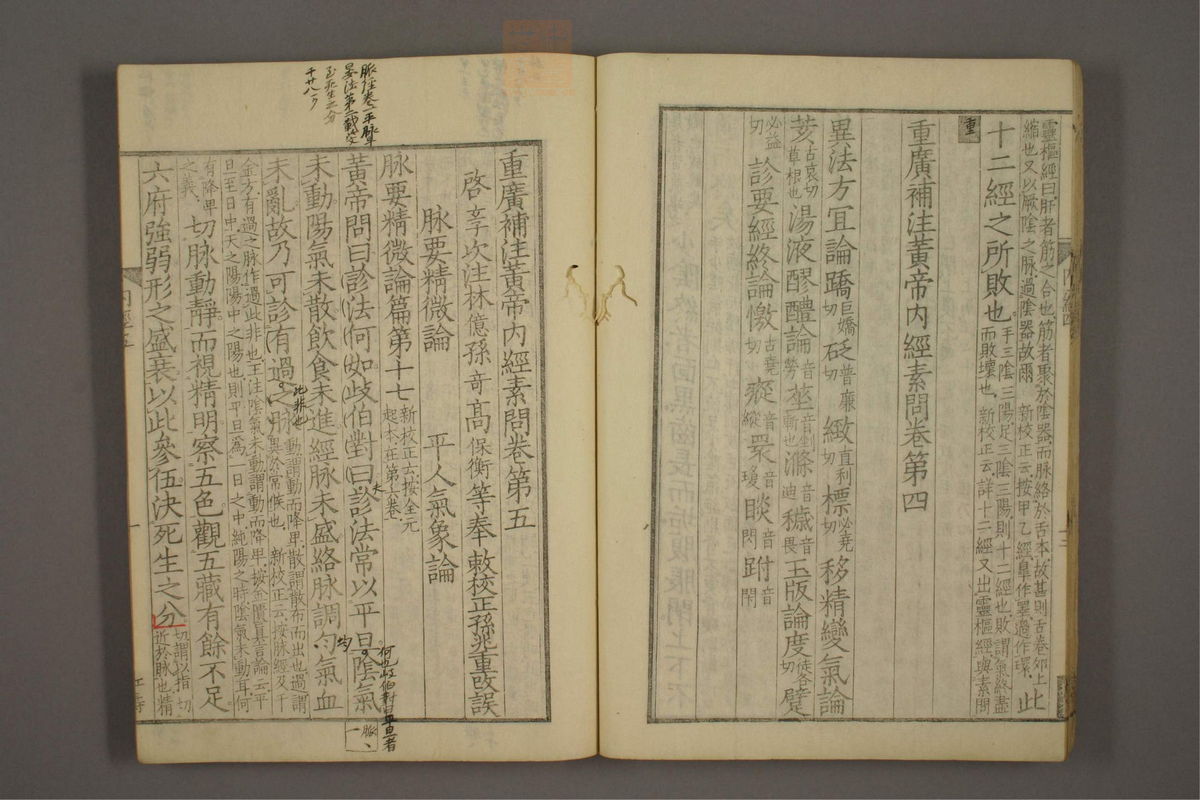 靈樞經曰肝者筋之合也筋者聚於陰器而脉絡於舌本故甚則舌卷卵上
縮也又以厥陰之脉過陰器故爾 新校正云按甲乙經皐作睪過作環 此
十二經之所敗也 手三陰三陽足三陰三陽則十二經也敗謂氣終盡
而敗壞也 新校正云詳十二經又出靈樞經與素問
重
重廣補注黃帝內經素問卷第四
異法方宜論蹻巨嬌切 砭普廉切 緻直利切 標必堯切 移精變氣論
荄古哀切草根也 湯液醪醴論 莝音剉斬也 滌音迪 穢音畏 玉版論度徒各切 躄
必益切 診要經終論 憿古堯切 瘲音縱 睘音瓊 睒音閃 跗音
重廣補注黃帝內經素問卷第五
啓玄子次注林億孫奇高保衡等奉敕校正孫兆重改誤
脉要精微論 平人氣象論
脉要精微論篇第十七 新校正云按全元
起本在第六卷
黃帝問曰診法何如歧伯對曰診法常以平旦陰氣
未動陽氣未散飲食未進經脉未盛絡脉調勻氣血
未亂故乃可診有過之脉 動謂動而降卑散謂散布而出也過謂
異於常候也 新校正云按脉經及千
金方有過之脉作過此非也王注陰氣未動謂動而降卑按金匱真言論云平
旦至日中天之陽陽中之陽也則平旦爲一日之中純陽之時陰氣未動耳何
有降卑
之義 切脉動靜而視精明察五色觀五藏有餘不足
六府強弱形之盛衰以此參伍決死生之分 切謂以指切
近於脉也精
脈經卷一平脉
至死生之分
此非也
均
何也岐伯對曰平旦者
內經五
一